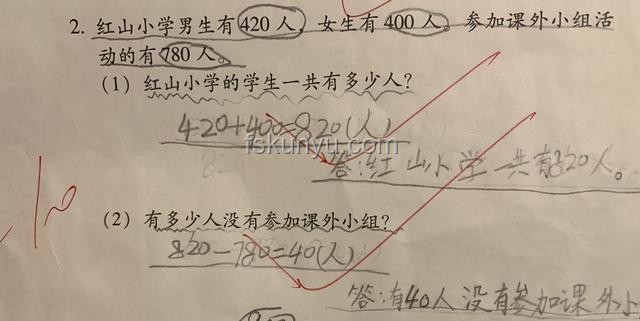 2. 红山小学男生有420人，女生有400人。参加课外小组活
动的有780人。
(1) 红山小学的学生一共有多少人？
420+400=820(人)
fskunyu.com
答:红山小学一共有820人。
(2) 有多少人没有参加课外小组？
820-780=40(人)
答:有40人没有参加课外小